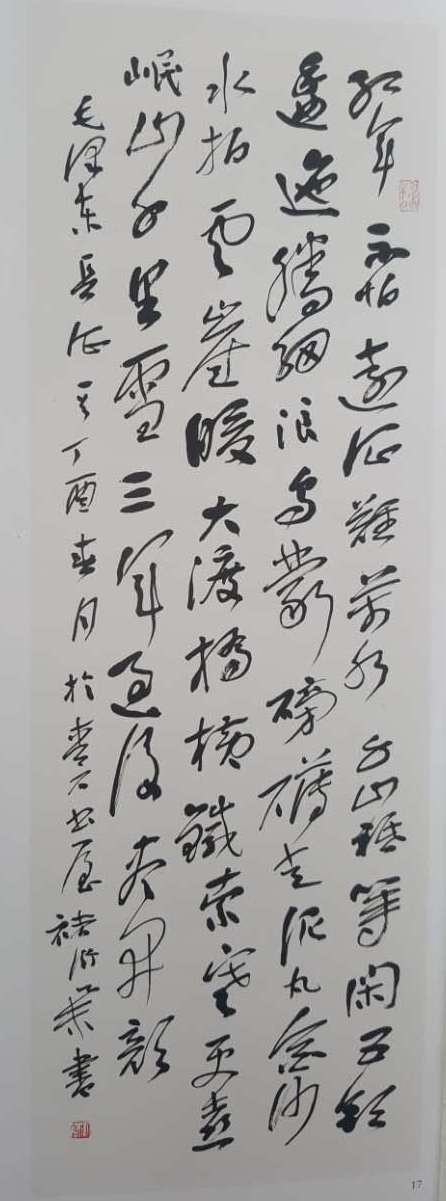 红军不怕远征难万水千山只等闲五岭
逶迤腾细浪乌蒙磅礴走泥丸金沙
水拍云崖暖大渡桥横鐵索寒更喜
岷山千里雪三军过后尽开颜
毛泽东长征 丁酉春月於 石书屋 书
17